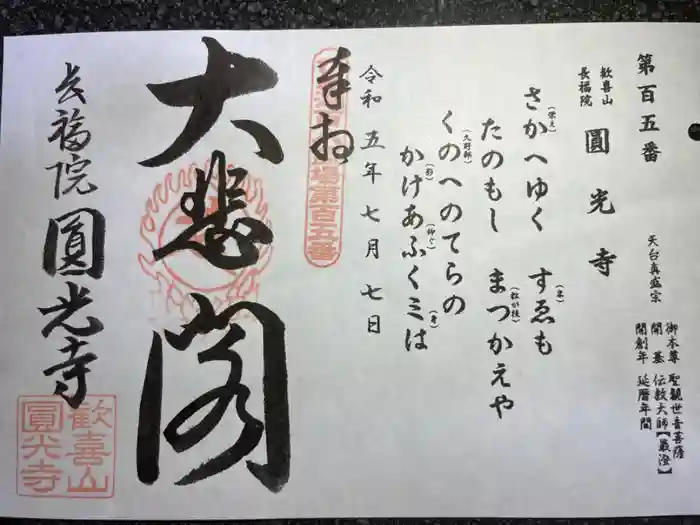 第百五番
天台真盛宗
歓喜山
長福院
圓光寺
御本尊 聖観世音菩薩
開基 伝教大師【最澄】
開創年 延暦年間
さかへゆく(栄え) すゑも(末)
たのもし まつかえや(松が枝)
くのへのてらの(久野部)
かけあふくミは(影)(仰ぐ)(身)
令和五年七月七日
奉拝
場第百五番
大悲閣
長福院圓光寺
歓喜山
圓光寺